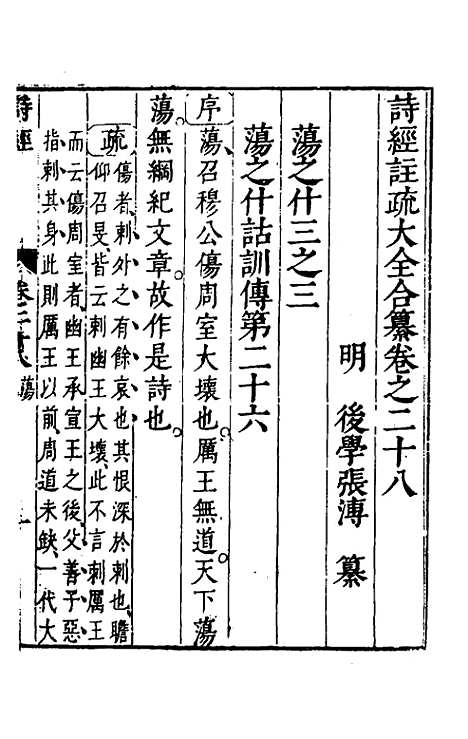 詩經註疏大全合纂卷之二十八
明　後學張溥　纂
蕩之什三之三
蕩之什詁訓傳第二十六
序蕩召穆公傷周室大壞也。厲王無道天下蕩
蕩。無綱紀文章。故作是詩也。
疏傷者刺外之有餘哀也其恨深於刺也瞻
仰召旻皆云刺幽王大壞此不言刺厲王
而云傷周室者幽王承宣王之後父善子惡
指刺其身此則厲王以前周道未缺一代大
詩經
卷之二十八
蕩